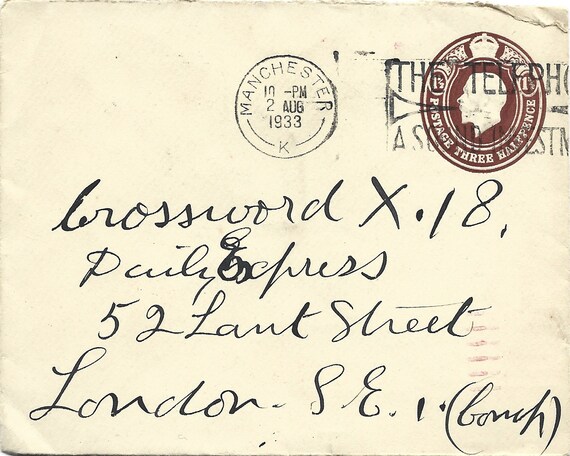 MANCHESTER
10 - PM
2 AUG
1933
K
THE TELEPHO
A SOUND INVESTM
1½ 1½
POSTAGE THREE HALFPENCE
Crossword X.18,
Daily Express
52 Lant Street
London. S.E.1. (Comp)